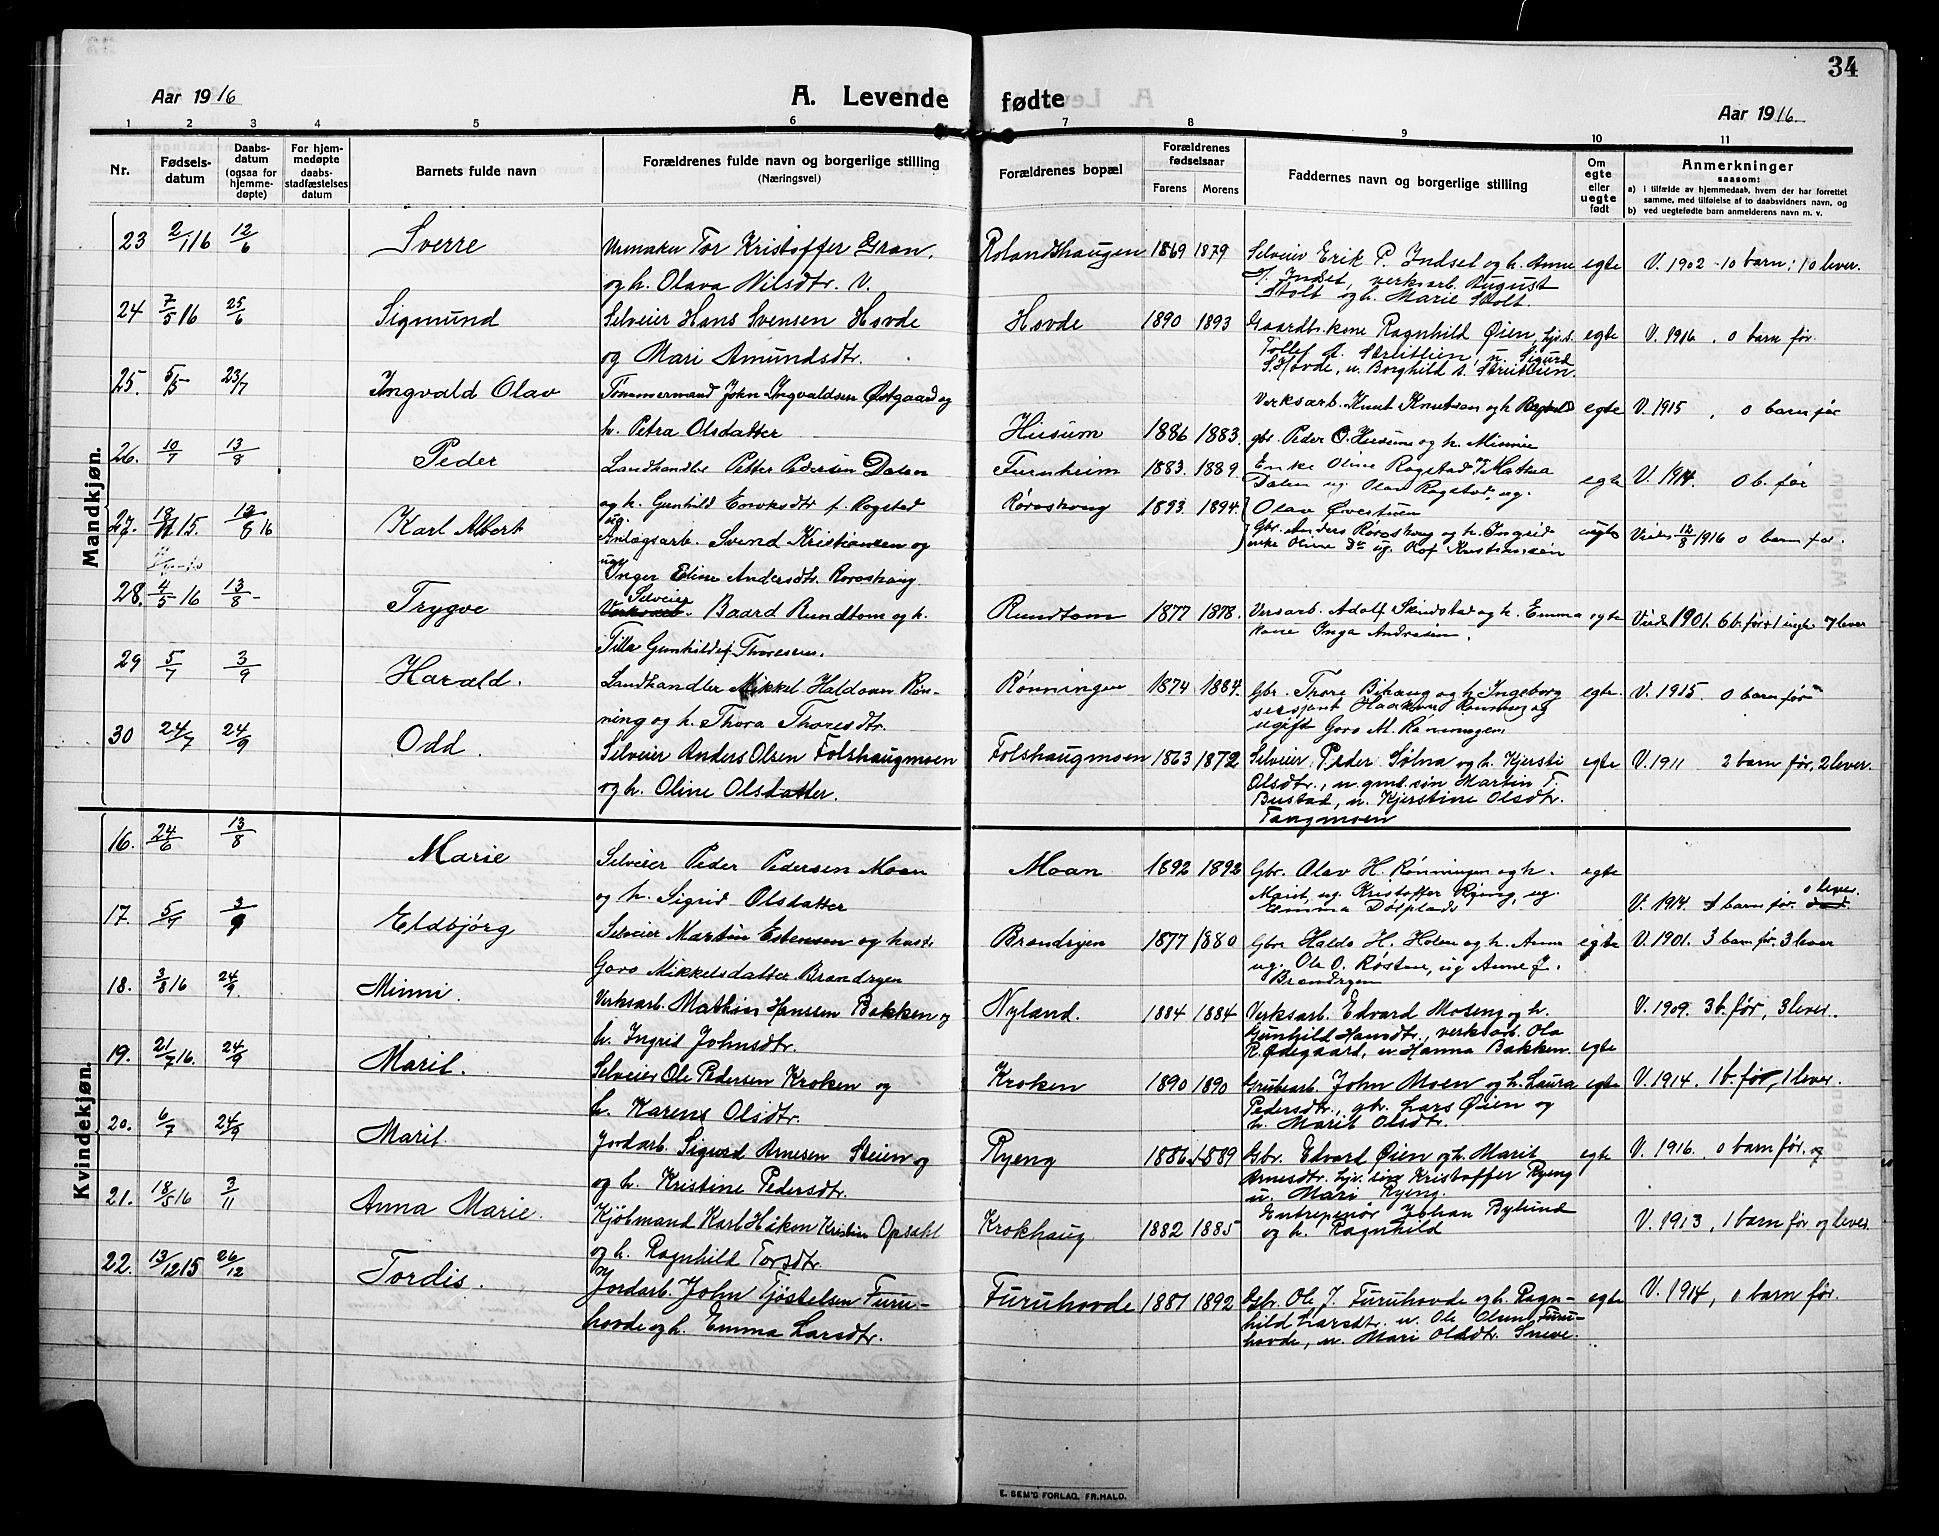 34
Aar 1916
A. Levende fødte
Aar 1916
1 2 3 4 5 6 7 8 9 10 11
Nr.
Fødsels-
datum
Daabs-
datum
(ogsaa for
hjemme-
døpte)
For hjem-
medøpte
daabs-
stadfæstelses
datum
Barnets fulde navn
Forældrenes fulde navn og borgerlige stilling
(Næringsvei)
Forældrenes bopæl
Forældrenes
fødselsaar
Farens Morens
Faddernes navn og borgerlige stilling
Om
egte
eller
uegte
født
Anmerkninger
saasom:
a) i tilfælde av hjemmedaab, hvem der har forrettet
samme, med tilføielse af to daabsvidners navn, og
b) ved uegtefødte barn anmelderens navn m. v.
Mandkjøn.
23 2/1 16 12/6 Sverre Urmaker Tor Kristoffer Gran, Rolandshaugen 1869 1879 Selveier Erik P. Indset og h. Anne egte V. 1902 - 10 barn: 10 lever.
og h. Olava Nilsdtr. V. Indset, verksarb. August
Stolt og h. Marie Stolt.
24 7/5 16 25/6 Sigmund Selveier Hans Svensen Hovde Hovde 1890 1893 Gaardbr.kone Ragnhild Øien, egte V. 1916, 0 barn før.
og Mari Amundsdtr. Tollef Streitlien, u. Sigurd
S. Hovde, u. Borghild Streitlien.
25. 5/5 23/7 Ingvald Olav Tømmermand John Ingvaldsen Østgaard og Verksarb. Knut Knutsen og h egte V. 1915, 0 barn før
h. Petra Olsdatter Husum 1886 1883. gbr. Peder O. Husum og h. Minnie
26. 10/7 13/8 Peder Landhandler Petter Pedersen Dalen Furuheim 1883. 1889. Enke Oline Rogstad Mathea egte V. 1914. 0 b. før
og h. Gunhild f. Rogstad Dalen ug. Olav Rogstad, ug.
27. 18/11 15. 13/8 16 Karl Albert ug. Anlægsarb. Svend Kristiansen og Røroshaug 1893 1894. Olav Øvestuen
Gbr. Anders Røroshaug og h. Ingrid uegte 1916 0 barn før.
enke Oline
ug. Inger Eline Andersdtr. Røroshaug
28. 4/5 16 13/8 Trygve Selveier Baard Rundtom og h. Rundtom 1877 1878. Adolf og h. Emma egte 1901. 6 b. før + 1 uegte 7 lever
Tilla Gunhild f. Thoresen. kone Inga Andresen.
29 5/7 3/9 Harald. Landhandler Mikkel Haldosen Røn- Rønningen 1874 1884. Gbr. Thore Bihaug og h. Ingeborg egte. V. 1915 0 barn før
ning og h. Thora Thoresdtr. sersjant Haakon Rønning og
ugift Goro M. Rønningen
30 24/7 24/9 Odd. Selveier Anders Olsen Folshaugmoen Folshaugmoen 1863 1872 Selveier Peder Sølna og h. Kjersti egte V. 1911 2 barn før, 2 lever.
og h. Oline Olsdatter. Olsdtr., u. gmd.søn Martin T.
Bustad, u. Kjerstine Olsdtr.
Tangmoen
Kvindekjøn.
16. 24/6 13/8 Marie Selveier Peder Pedersen Moan Moan 1892 1892 Gbr. Olav H. Rønningen og h. egte
og h. Sigrid Olsdatter Marit, ug. Kristoffer Ryeng, ug.
Emma Dølplads V. 1914. barn før. 0 lever.
17. 3/9 Eldbjørg Selveier Martin Estensen og hustr. Brandryen 1877 1880 Gbr. Haldo H. Holen og h. Anne egte V. 1901. 3 barn før, 3 lever
Goro Mikkelsdatter Brandryen ug. Ole O. Røsten, ug Anne J.
Brandryen
18. 3/8 16 24/9 Minni. Verksarb. Mathias Hansen Bakken og Nyland. 1884 1884 Verksarb. Edvard Moseng og h. V. 1909. 3 b. før, 3 lever.
h. Ingrid Johnsdtr. Gunhild Hansdtr., verksarb. Ola
R. Ødegaard, u. Hanna Bakken. egte
19. 21/7 16. 24/9 Marit. Selveier Ole Pedersen Kroken og Kroken 1890 1890 Grubearb. John Moen og h. Laura egte V. 1914. 1 b. før, 1 lever.
h. Karens Olsdtr. Pedersdtr., gbr. Lars Øien og
h. Marit Olsdtr.
20. 6/7 24/9 Marit. Jordarb. Sigurd Arnesen Steien og Ryeng 1886 1889 Gbr. Edvard Øien og h. Marit egte V. 1916. 0 barn før.
og h. Kristine Pedersdtr. Arnesdtr. Kristoffer Ryeng
u. Mari Ryeng.
21. 18/5 16 3/11 Anna Marie. Kjøbmand Karl Håkon Kristin Opsahl Krokhaug 1882 1885 Entrepenør Johan Bylund V. 1913, 1 barn før og lever
og h. Ragnhild Torsdtr. og h. Ragnhild
22. 13/12 15 26/12 Tordis. Jordarb. John Tjøstelsen Furu- Furuhovde 1881 1892 Gbr. Ole J. Furuhovde og h. Ragn- egte V. 1914, 0 barn før.
hovde og h. Emma Larsdtr. hild Larsdtr. u. Ole Olsen Furu-
hovde, u. Mari Olsdtr. Sneve.
E. SEM'S FORLAG, FR.HALD.